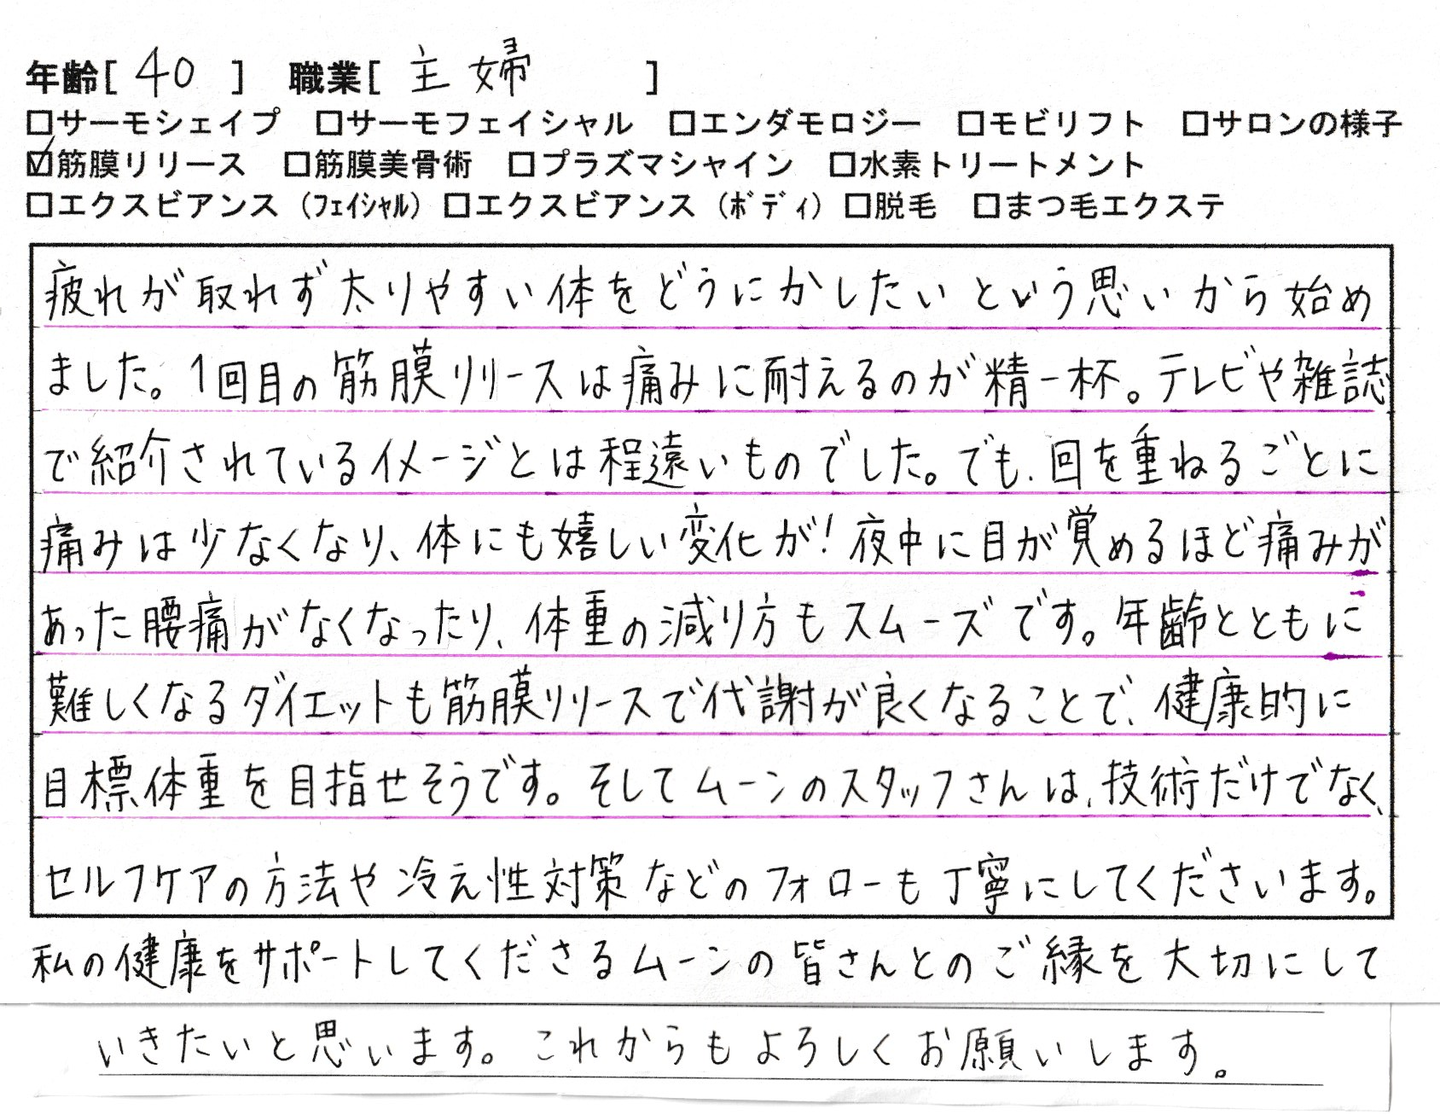 年齢[ 40 ] 職業[ 主婦 ]
□サーモシェイプ □サーモフェイシャル □エンダモロジー □モビリフト □サロンの様子
☑筋膜リリース □筋膜美骨術 □プラズマシャイン □水素トリートメント
□エクスビアンス（ﾌｪｲｼｬﾙ）□エクスビアンス（ﾎﾞﾃﾞｨ）□脱毛 □まつ毛エクステ
疲れが取れず太りやすい体をどうにかしたいという思いから始め
ました。1回目の筋膜リリースは痛みに耐えるのが精一杯。テレビや雑誌
で紹介されているイメージとは程遠いものでした。でも、回を重ねるごとに
痛みは少なくなり、体にも嬉しい変化が！夜中に目が覚めるほど痛みが
あった腰痛がなくなったり、体重の減り方もスムーズです。年齢とともに
難しくなるダイエットも筋膜リリースで代謝が良くなることで、健康的に
目標体重を目指せそうです。そしてムーンのスタッフさんは、技術だけでなく、
セルフケアの方法や冷え性対策などのフォローも丁寧にしてくださいます。
私の健康をサポートしてくださるムーンの皆さんとのご縁を大切にして
いきたいと思います。これからもよろしくお願いします。